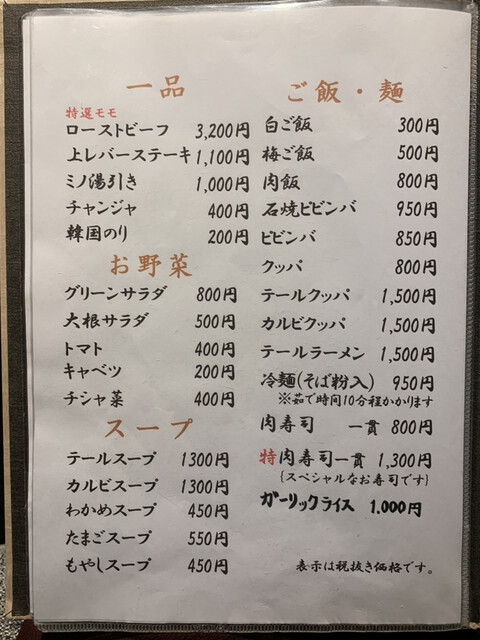 一品
特選モモ
ローストビーフ 3,200円
上レバーステーキ 1,100円
ミノ湯引き 1,000円
チャンジャ 400円
韓国のり 200円
お野菜
グリーンサラダ 800円
大根サラダ 500円
トマト 400円
キャベツ 200円
チシャ菜 400円
スープ
テールスープ 1300円
カルビスープ 1300円
わかめスープ 450円
たまごスープ 550円
もやしスープ 450円
ご飯・麺
白ご飯 300円
梅ご飯 500円
肉飯 800円
石焼ビビンバ 950円
ビビンバ 850円
クッパ 800円
テールクッパ 1,500円
カルビクッパ 1,500円
テールラーメン 1,500円
冷麺(そば粉入) 950円
※茹で時間10分程かかります
肉寿司 一貫 800円
特肉寿司一貫 1,300円
{スペシャルなお寿司です}
ガーリックライス 1,000円
表示は税抜き価格です。